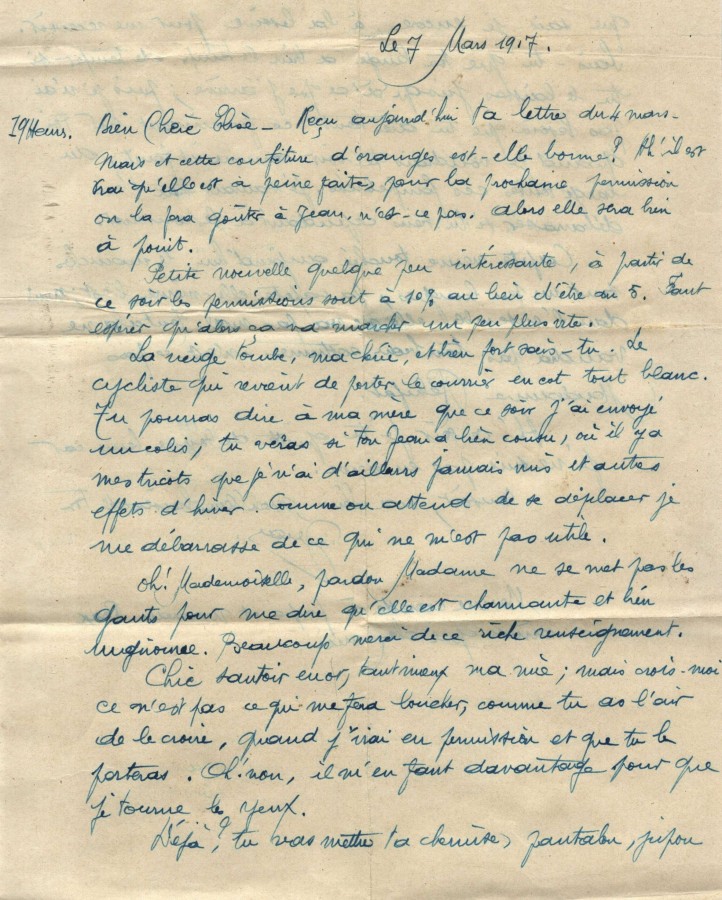 Le 7 Mars 1917.
19 Heures. Bien Chère Elise - Reçu aujourd'hui ta lettre du 4 mars.
Mais et cette confiture d'oranges est-elle bonne? Ah! il est
vrai qu'elle est à peine faite, pour la prochaine permission
on la fera goûter à Jean, n'est-ce pas. alors elle sera bien
à point.
Petite nouvelle quelque peu intéressante, à partir de
ce soir les permissions sont à 10% au lieu d'être au 5. Faut
espérer qu'alors ça va marcher un peu plus vite.
La neige tombe, ma chérie, et bien fort sais-tu. Le
cycliste qui revient de porter le courrier en est tout blanc.
Tu pourras dire à ma mère que ce soir j'ai envoyé
un colis, tu verras si ton Jean a bien cousu, où il y a
mes tricots que je n'ai d'ailleurs jamais mis et autres
effets d'hiver. Comme on attend de se déplacer je
me débarrasse de ce qui ne m'est pas utile.
Oh! Mademoiselle, pardon Madame ne se met pas les
gants pour me dire qu'elle est charmante et bien
mignonne. Beaucoup merci de ce riche renseignement.
Chic sautoir en or, tant mieux ma mie; mais crois-moi
ce n'est pas ce qui me fera loucher, comme tu as l'air
de le croire, quand j'irai en permission et que tu le
porteras. Oh! non, il m'en faut davantage pour que
je tourne les yeux.
Déjà? tu vas mettre ta chemise, pantalon, jupon